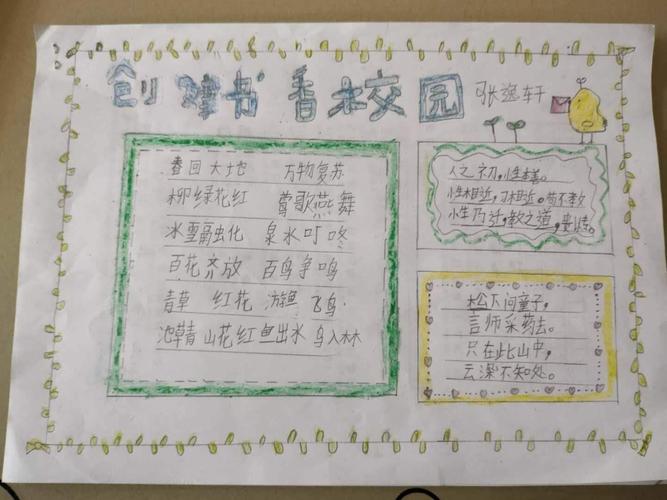 创建书香校园
张逸轩
春回大地 万物复苏
柳绿花红 莺歌燕舞
冰雪融化 泉水叮咚
百花齐放 百鸟争鸣
青草 红花 游鱼 飞鸟.
池草青 山花红 鱼出水 鸟入林
人之初,性本善。
性相近,习相近。苟不教
性乃迁,教之道,贵以专。
松下问童子,
言师采药去。
只在此山中,
云深不知处。